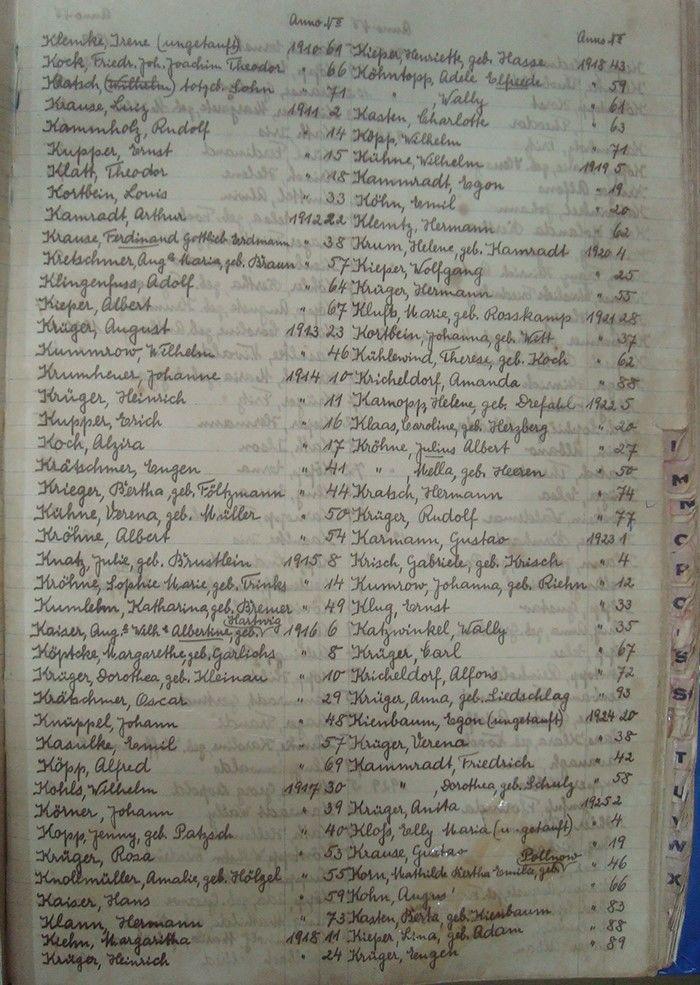 Anno No
Klemke, Irene (ungetauft) 1910 61
Kock, Friedr. Joh. Joachim Theodor " 66
Kratsch, (Wilhelm) totgeb. Sohn " 71
Krause, Luiz 1911 2
Kammholz, Rudolf " 14
Kupper, Ernst " 15
Klatt, Theodor " 18
Kortbein, Louis " 33
Kamradt, Arthur 1912 22
Krause, Ferdinand Gottlieb Erdmann " 38
Kretschmer, Auge Maria, geb. Braun " 57
Klingenfuss, Adolf " 64
Kieper, Albert " 67
Krüger, August 1913 23
Kummrow, Wilhelm " 46
Krumheuer, Johanne 1914 10
Krüger, Heinrich " 11
Kupper, Erich " 16
Koch, Alzira " 17
Krätschmer, Eugen " 41
Krieger, Bertha, geb. Föltzmann " 44
Kühne, Verena, geb. Müller " 50
Kröhne, Albert " 54
Knatz, Julie, geb. Brustlein 1915 8
Kröhne, Sophie Marie, geb. Trinks " 14
Kumlehn, Katharina, geb. Bremer " 49
Kaiser, Aug.e Wilh.e Albertine, geb. Hartwig 1916 6
Köptcke, Margarethe, geb. Garlichs " 8
Krüger, Dorothea, geb. Kleinau " 10
Krätschmer, Oscar " 29
Knüppel, Johann " 48
Kasulke, Emil " 57
Köpp, Alfred " 69
Kohls, Wilhelm 1917 30
Körner, Johann " 39
Kopp, Jenny, geb. Patzsch " 40
Krüger, Rosa " 53
Knollmüller, Amalie, geb. Hölzel " 55
Kaiser, Hans " 59
Klann, Hermann " 73
Kiehn, Margaritha 1918 11
Krüger, Heinrich " 24
Anno No
Kieper, Henriette, geb. Hasse 1918 43
Köhntopp, Adele Elfriede " 59
" Wally " 61
Kasten, Charlotte " 63
Köpp, Wilhelm " 71
Kühne, Wilhelm 1919 5
Kammradt, Egon " 19
Köhn, Emil " 20
Klemtz, Hermann " 62
Krum, Helene, geb. Kamradt 1920 4
Kieper, Wolfgang " 25
Krüger, Hermann " 55
Klug, Marie, geb. Rosskamp 1921 28
Kortbein, Johanna, geb. Witt " 37
Kühlewind, Therese, geb. Koch " 62
Kricheldorf, Amanda " 88
Karnopp, Helene, geb. Drefahl 1922 5
Klaas, Caroline, geb. Herzberg " 20
Kröhne, Julius Albert " 27
" , Mella, geb. Heeren " 50
Kratsch, Hermann " 74
Krüger, Rudolf " 77
Karmann, Gustav 1923 1
Krisch, Gabriele, geb. Krisch " 4
Kumrow, Johanna, geb. Riehn " 12
Klug, Ernst " 33
Katzwinkel, Wally " 35
Krüger, Carl " 67
Kricheldorf, Alfons " 72
Krüger, Anna, geb. Liedschlag " 93
Kienbaum, Egon (ungetauft) 1924 20
Krüger, Verena " 38
Kammradt, Friedrich " 42
" , Dorothea, geb. Schulz " 58
Krüger, Anita 1925 2
Kloss, Elly Maria (ungetauft) " 4
Krause, Gustav " 19
Korn, Mathilde Bertha Emilie, geb. Pollnow " 46
Kohn, " 66
Kasten, Berta, geb. Kienbaum " 83
Kieper, Lina, geb. Adam " 88
Krüger, Eugen " 89
L
M
N
O
P
Q
R
S
S
T
U
V
W
X